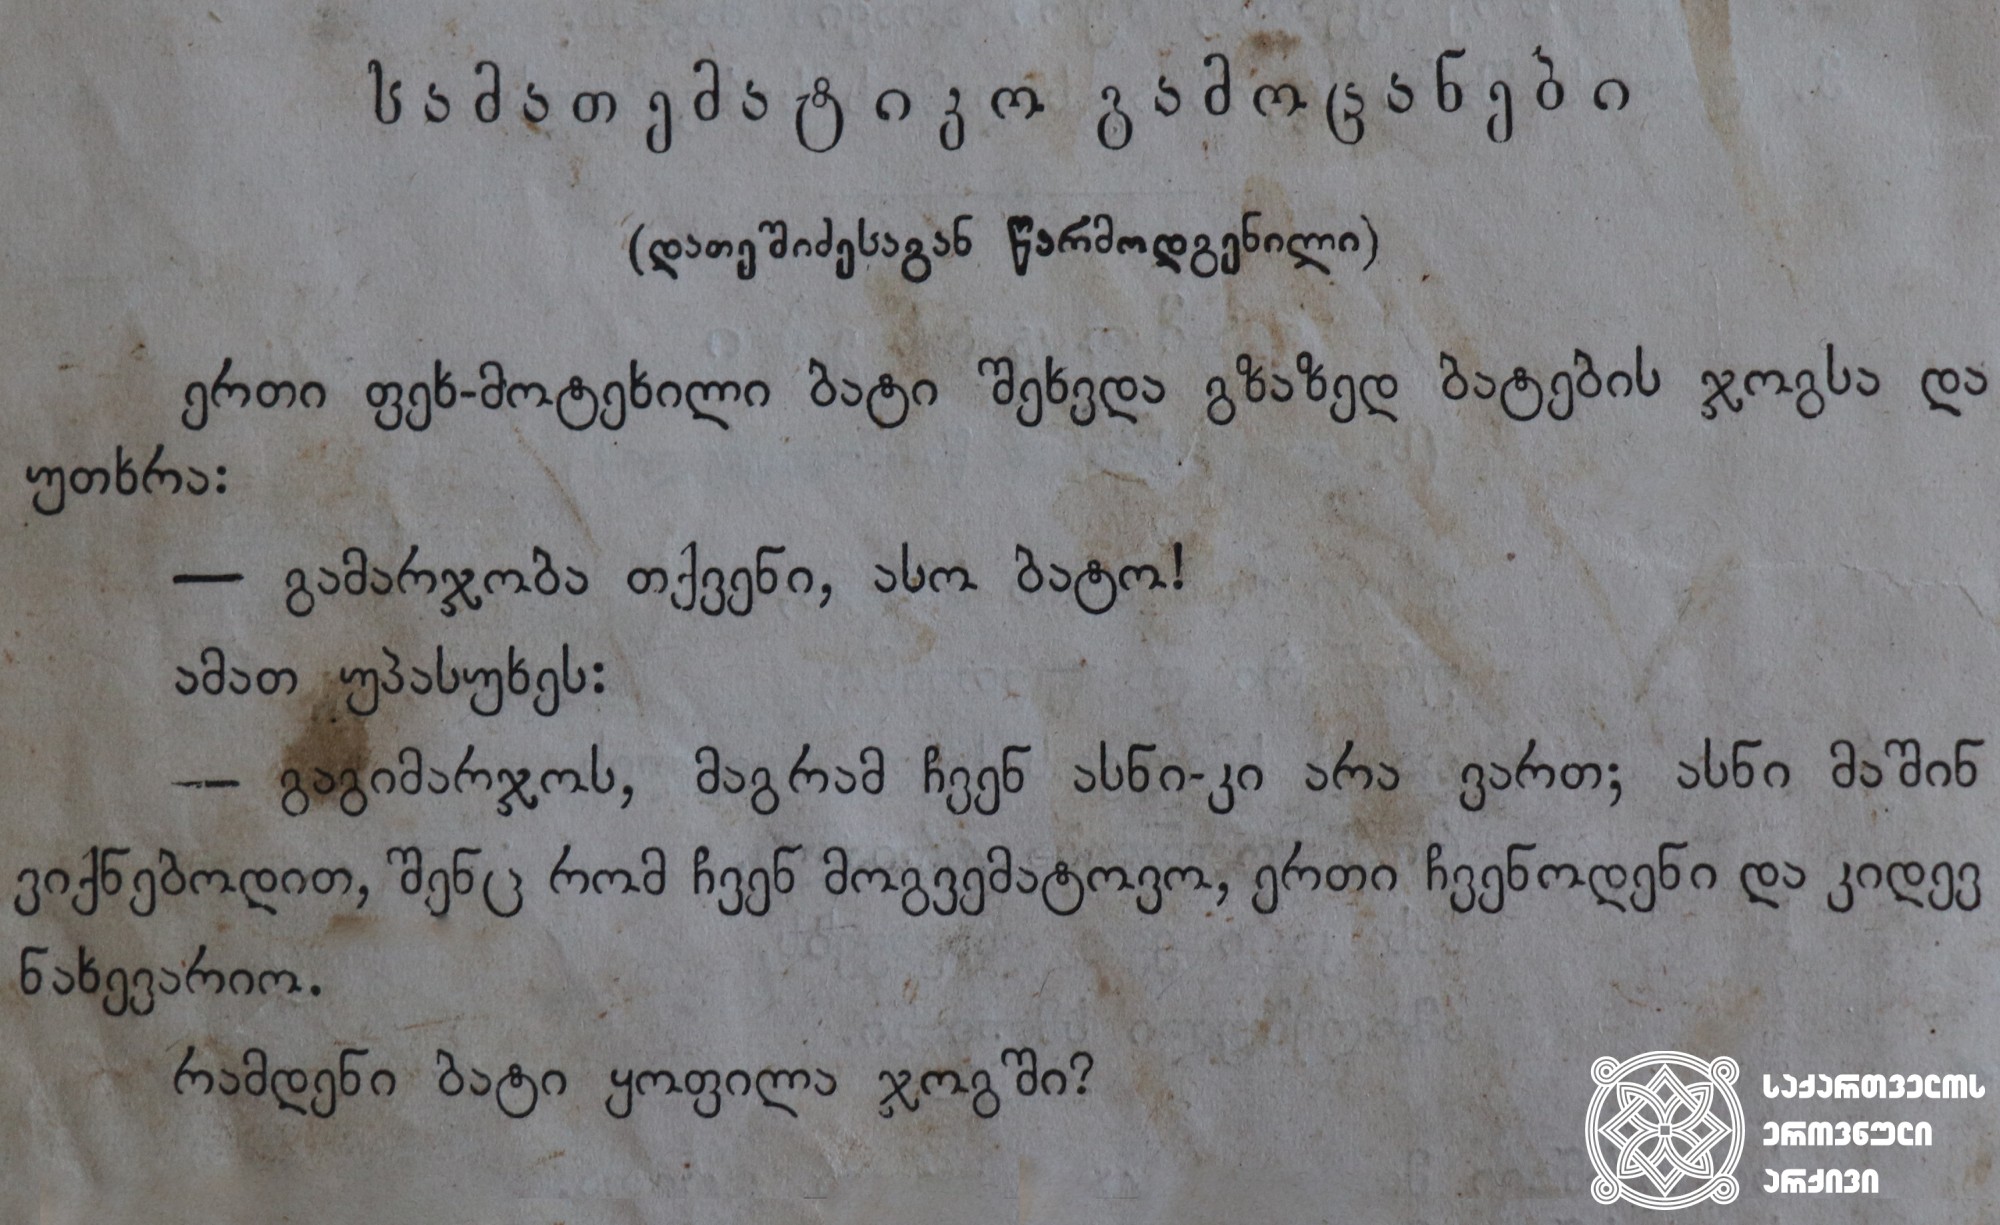 სამათემატიკო გამოცანები
(დათეშიძესაგან წარმოდგენილი)
ერთი ფეხ-მოტეხილი ბატი შეხვდა გზაზედ ბატების ჯოგსა და
უთხრა:
— გამარჯობა თქვენი, ასო ბატო!
ამათ უპასუხეს:
— გაგიმარჯოს, მაგრამ ჩვენ ასნი-კი არა ვართ; ასნი მაშინ
ვიქნებოდით, შენც რომ ჩვენ მოგვემატოვო, ერთი ჩვენოდენი და კიდევ
ნახევარიო.
რამდენი ბატი ყოფილა ჯოგში?
საქართველოს
ეროვნული
არქივი